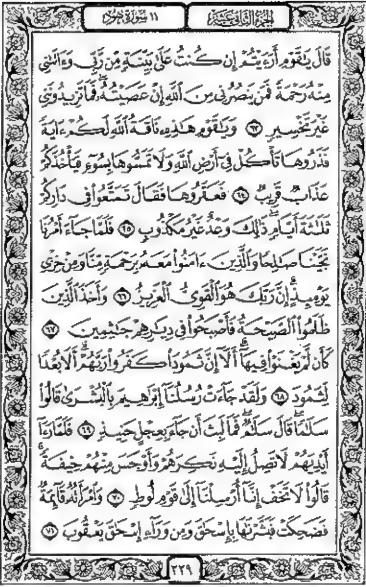 الجزء الثاني عشر ١١ سورة هود
قَالَ يَٰقَوْمِ أَرَءَيْتُمْ إِن كُنتُ عَلَىٰ بَيِّنَةٍ مِّن رَّبِّى وَءَاتَىٰنِى
مِنْهُ رَحْمَةً فَمَن يَنصُرُنِى مِنَ ٱللَّهِ إِنْ عَصَيْتُهُۥ فَمَا تَزِيدُونَنِى
غَيْرَ تَخْسِيرٍ ٦٣ وَيَٰقَوْمِ هَٰذِهِۦ نَاقَةُ ٱللَّهِ لَكُمْ ءَايَةً
فَذَرُوهَا تَأْكُلْ فِىٓ أَرْضِ ٱللَّهِ وَلَا تَمَسُّوهَا بِسُوٓءٍ فَيَأْخُذَكُمْ
عَذَابٌ قَرِيبٌ ٦٤ فَعَقَرُوهَا فَقَالَ تَمَتَّعُوا۟ فِى دَارِكُمْ
ثَلَٰثَةَ أَيَّامٍ ذَٰلِكَ وَعْدٌ غَيْرُ مَكْذُوبٍ ٦٥ فَلَمَّا جَآءَ أَمْرُنَا
نَجَّيْنَا صَٰلِحًا وَٱلَّذِينَ ءَامَنُوا۟ مَعَهُۥ بِرَحْمَةٍ مِّنَّا وَمِنْ خِزْىِ
يَوْمِئِذٍ إِنَّ رَبَّكَ هُوَ ٱلْقَوِىُّ ٱلْعَزِيزُ ٦٦ وَأَخَذَ ٱلَّذِينَ
ظَلَمُوا۟ ٱلصَّيْحَةُ فَأَصْبَحُوا۟ فِى دِيَٰرِهِمْ جَٰثِمِينَ ٦٧
كَأَن لَّمْ يَغْنَوْا۟ فِيهَآ أَلَآ إِنَّ ثَمُودَا۟ كَفَرُوا۟ رَبَّهُمْ أَلَا بُعْدًا
لِّثَمُودَ ٦٨ وَلَقَدْ جَآءَتْ رُسُلُنَآ إِبْرَٰهِيمَ بِٱلْبُشْرَىٰ قَالُوا۟
سَلَٰمًا قَالَ سَلَٰمٌ فَمَا لَبِثَ أَن جَآءَ بِعِجْلٍ حَنِيذٍ ٦٩ فَلَمَّا رَءَآ
أَيْدِيَهُمْ لَا تَصِلُ إِلَيْهِ نَكِرَهُمْ وَأَوْجَسَ مِنْهُمْ خِيفَةً
قَالُوا۟ لَا تَخَفْ إِنَّآ أُرْسِلْنَآ إِلَىٰ قَوْمِ لُوطٍ ٧٠ وَٱمْرَأَتُهُۥ قَآئِمَةٌ
فَضَحِكَتْ فَبَشَّرْنَٰهَا بِإِسْحَٰقَ وَمِن وَرَآءِ إِسْحَٰقَ يَعْقُوبَ ٧١
٢٢٩